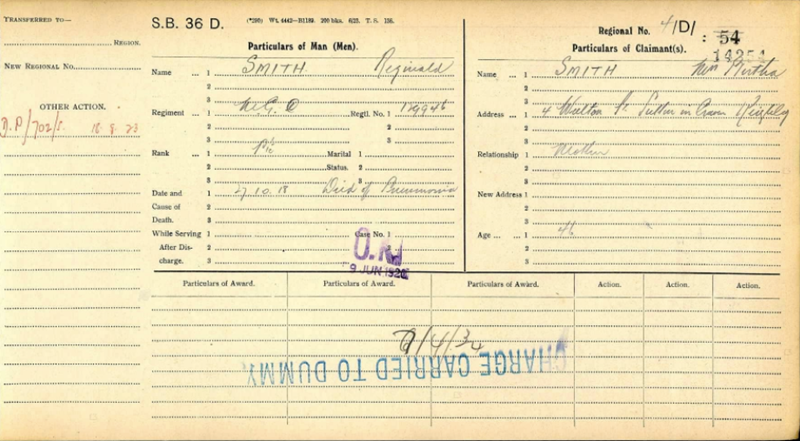 TRANSFERRED TO—
REGION.
NEW REGIONAL NO.
OTHER ACTION.
D.P/702/S. 18.8.23
S.B. 36 D. (*293) Wt. 4442—B1189. 200 bks. 6/23. T. S. 126.
Particulars of Man (Men).
Name 1 SMITH Reginald
2
3
Regiment 1 M.G.C Regtl. No. 1 129946
2 2
3 3
Rank 1 Pte Marital 1
2 Status. 2
3
Date and 1 27.10.18 Died of Pneumonia
Cause of 2
Death. 3
While Serving 1 Case No. 1
After Dis- 2
charge. 3
9 JUN 192
Regional No. 4/D/ : 54
14254
Particulars of Claimant(s).
Name 1 SMITH Mrs Martha
2
3
Address 1 4 St Sutton in Craven Keighley
2
3
Relationship 1 Mother
2
3
New Address 1
2
3
Age 1 46
2
3
Particulars of Award. Particulars of Award. Particulars of Award. Action. Action. Action.
/4/32
CHARGE CARRIED TO DUMMY